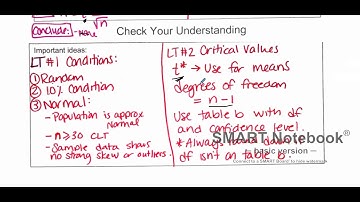 Conclude: - Here
√n
Check Your Understanding
Important ideas:
LT#1 Conditions:
① Random
② 10% Condition
③ Normal:
- Population is approx
Normal
- n≥30 CLT
- Sample data shows
no strong skew or outliers.
LT#2 Critical Values
t* → Use for means
degrees of freedom
= n-1
Use table B with df
and confidence level.
* Always round down if
df isn't on table B.
SMART Notebook®
— basic version —
Connect to a SMART Board® to hide watermark